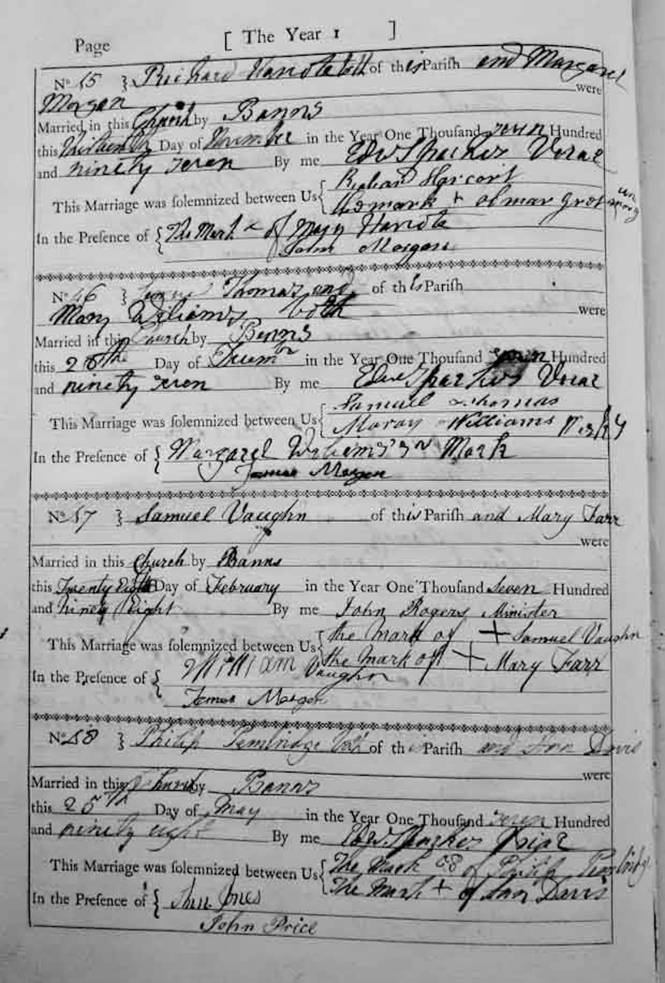 Page [ The Year 1 ]
No 15 } Richard of this Parish and Margaret
Morgan were
Married in this Church by Banns
this Day of in the Year One Thousand seven Hundred
and ninety seven By me Edw Sparkes
This Marriage was solemnized between Us { Harcort
mark +
In the Presence of { The Mark x of
John Morgan
No 46 } Thomas and of this Parish
Mary Williams both were
Married in this Church by Banns
this 28th Day of in the Year One Thousand seven Hundred
and ninety seven By me Sparkes
This Marriage was solemnized between Us { Samuel Thomas
Williams
In the Presence of { Margaret Mark
James Morgan
No 17 } Samuel Vaughn of this Parish and Mary Farr
were
Married in this Church by Banns
this Twenty Eighth Day of February in the Year One Thousand Seven Hundred
and ninety Eight By me John Rogers Minister
This Marriage was solemnized between Us { the Mark of + Samuel Vaughn
the Mark of + Mary Farr
In the Presence of { William Vaughn
James Morgan
No 18 } Philip Pembridge both of this Parish and Ann Davis
were
Married in this Church by Banns
this 25th Day of May in the Year One Thousand seven Hundred
and ninety eight By me Edw. Sparkes
This Marriage was solemnized between Us { The Mark of Philip Pembridge
The Mark + of Ann Davis
In the Presence of { Jones
John Price